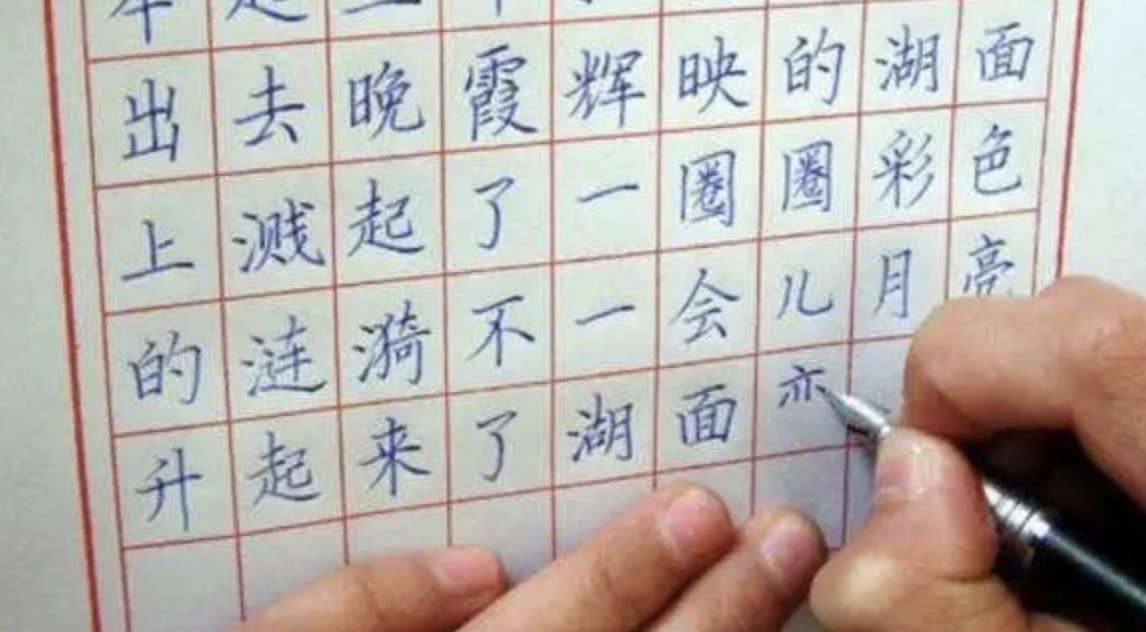 出去晚霞辉映的湖面
上溅起了一圈圈彩色
的涟漪不一会儿月亮
升起来了湖面